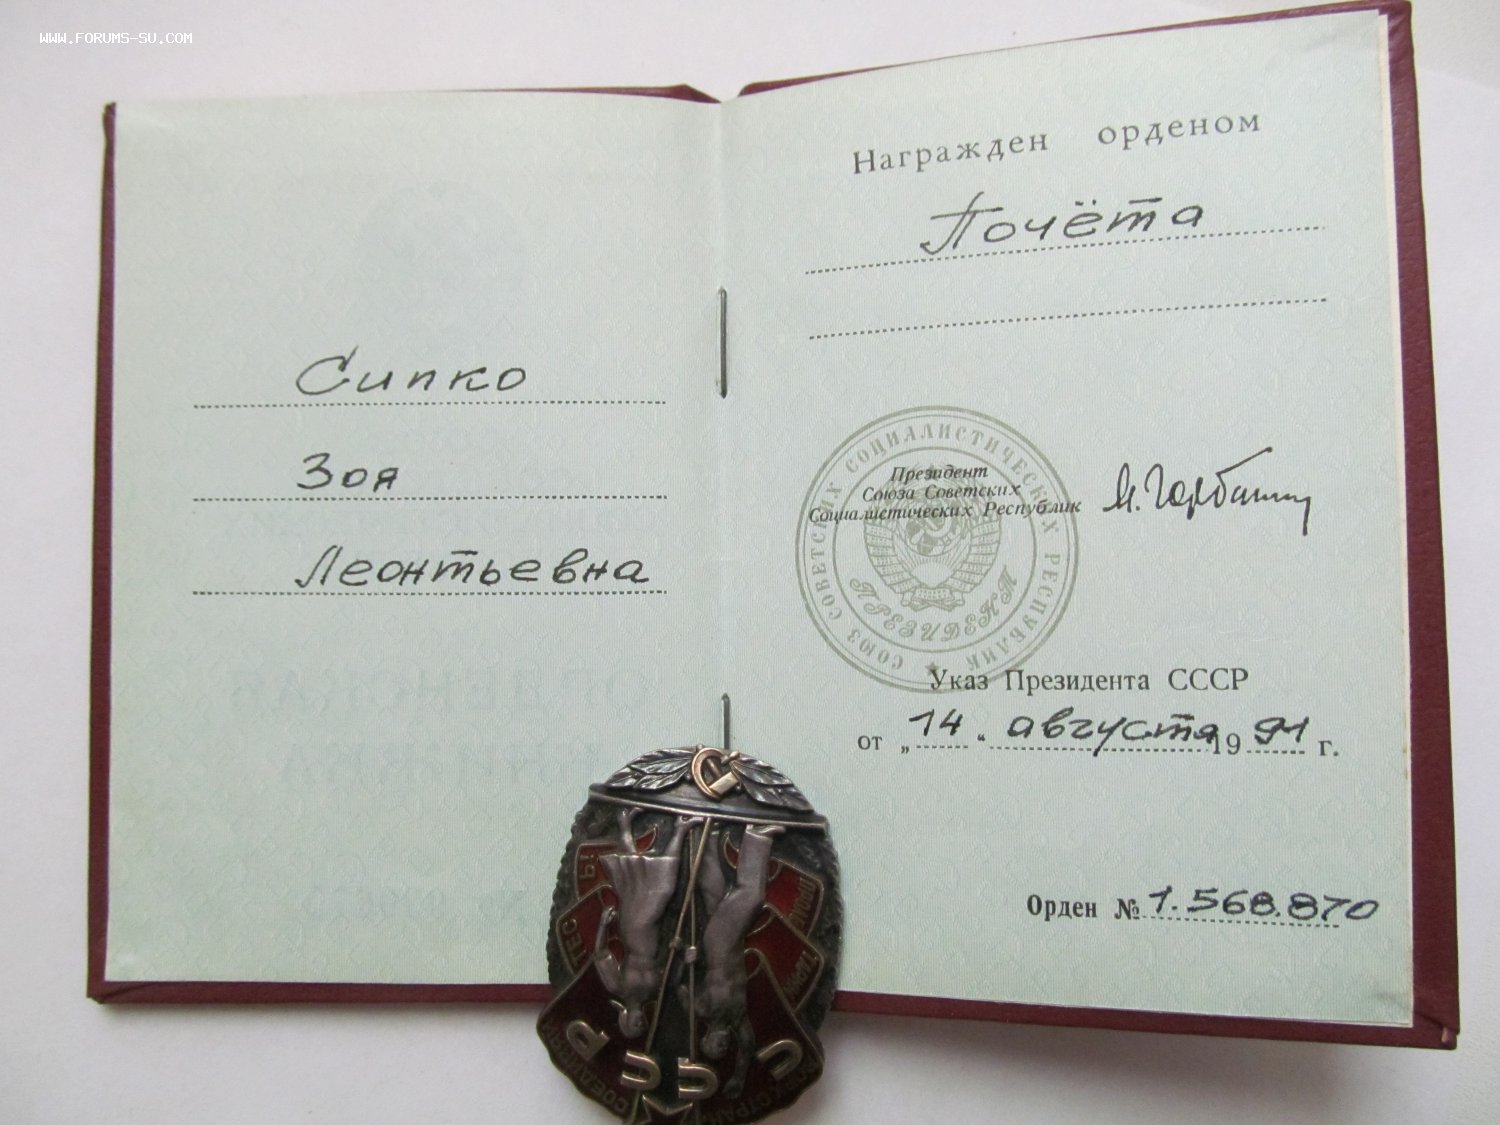 WWW.FORUMS-SU.COM
Сипко
Зоя
Леонтьевна
Награжден орденом
Почёта
Президент
Союза Советских
Социалистических Республик
М. Горбачёв
СОЮЗ СОВЕТСКИХ СОЦИАЛИСТИЧЕСКИХ РЕСПУБЛИК
ПРЕЗИДЕНТ
Указ Президента СССР
от „14“ августа 1991 г.
Орден № 1.568.870
СССР